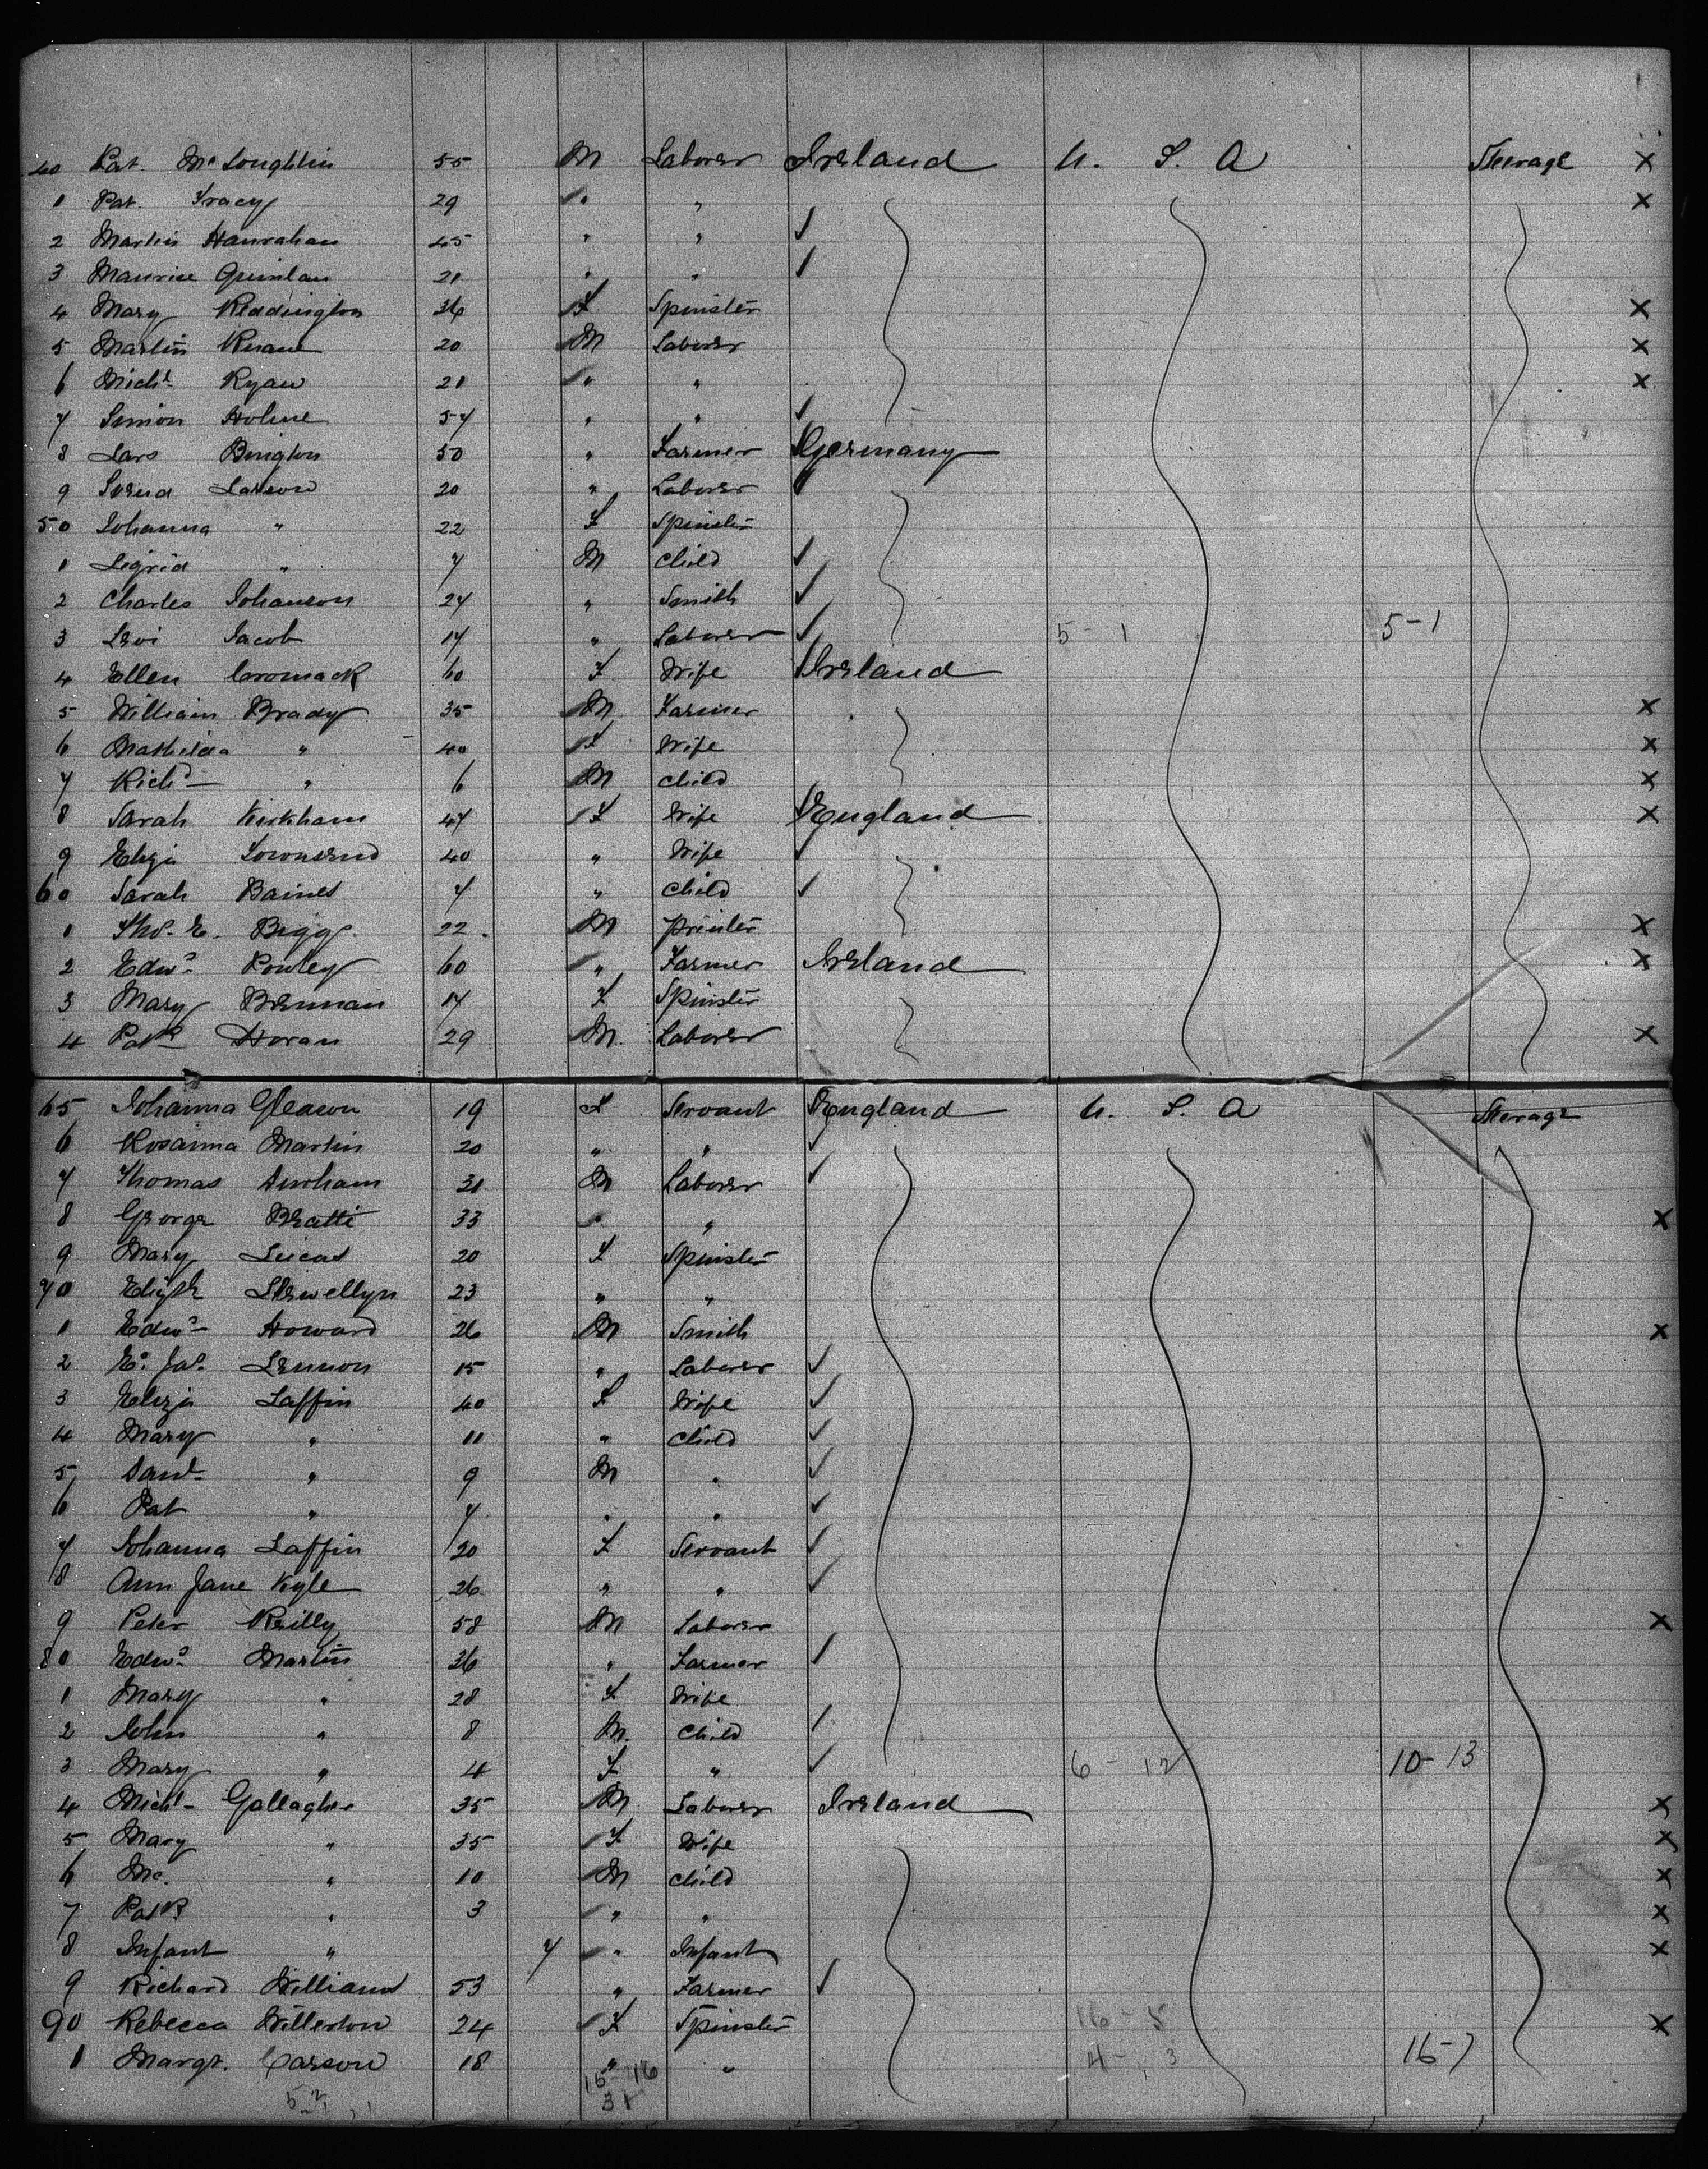 40 Pat. Mc Loughlin 55 M Laborer Ireland U. S. A Steerage X
1 Pat. Tracy 29 " " X
2 Martin Hanrahan 45 " " ✓
3 Maurice Quinlan 21 " " ✓
4 Mary Reddington 26 F Spinster X
5 Martin Ruane 20 M Laborer X
6 Michl Ryan 21 " " X
7 Simon Holme 57 " " ✓
8 Lars Bington 50 " Farmer Germany
9 Svend Larson 20 " Laborer ✓
50 Johanna " 22 F Spinster
1 Sigrid " 7 M Child ✓
2 Charles Johanson 24 " Smith ✓
3 Levi Jacob 17 " Laborer ✓ 5-1 5-1
4 Ellen Cromack 60 F Wife Ireland
5 William Brady 35 M Farmer X
6 Mathilda " 40 F Wife X
7 Richd " 6 M Child X
8 Sarah Kirkham 47 F Wife England X
9 Eliza Townsend 40 " Wife ✓
60 Sarah Baines 7 " Child ✓
1 Tho. E. Biggs. 22 M Printer X
2 Edwd Powley 60 " Farmer Ireland X
3 Mary Brennan 17 F Spinster
4 Patk Horan 29 M. Laborer X
65 Johanna Gleason 19 F Servant England U. S. A Steerage
6 Rosanna Martin 20 " " ✓
7 Thomas Durham 31 M Laborer ✓
8 George Beattie 33 " " X
9 Mary Lucas 20 F Spinster
70 Elizth Llewellyn 23 " "
1 Edwd Howard 26 M Smith X
2 Ed. Jas. Lennon 15 " Laborer ✓
3 Eliza Laffin 40 F Wife ✓
4 Mary " 11 " Child ✓
5 Danl " 9 M " ✓
6 Pat " 7 " " ✓
7 Johanna Laffin 20 F Servant ✓
8 Ann Jane Kyle 26 " " ✓
9 Peter Reilly 58 M Laborer X
80 Edwd Martin 36 " Farmer ✓
1 Mary " 28 F Wife
2 John " 8 M. Child ✓
3 Mary " 4 F " ✓ 6-12 10-13
4 Michl Gallagher 35 M Laborer Ireland X
5 Mary " 35 F Wife X
6 Mc. " 10 M Child X
7 Patk " 3 " " X
8 Infant " 7 " Infant X
9 Richard Williams 53 " Farmer ✓
90 Rebecca Willerton 24 F Spinster 16-5 X
1 Margt. Carson 18 " " 4-3 16-7
15-16
31